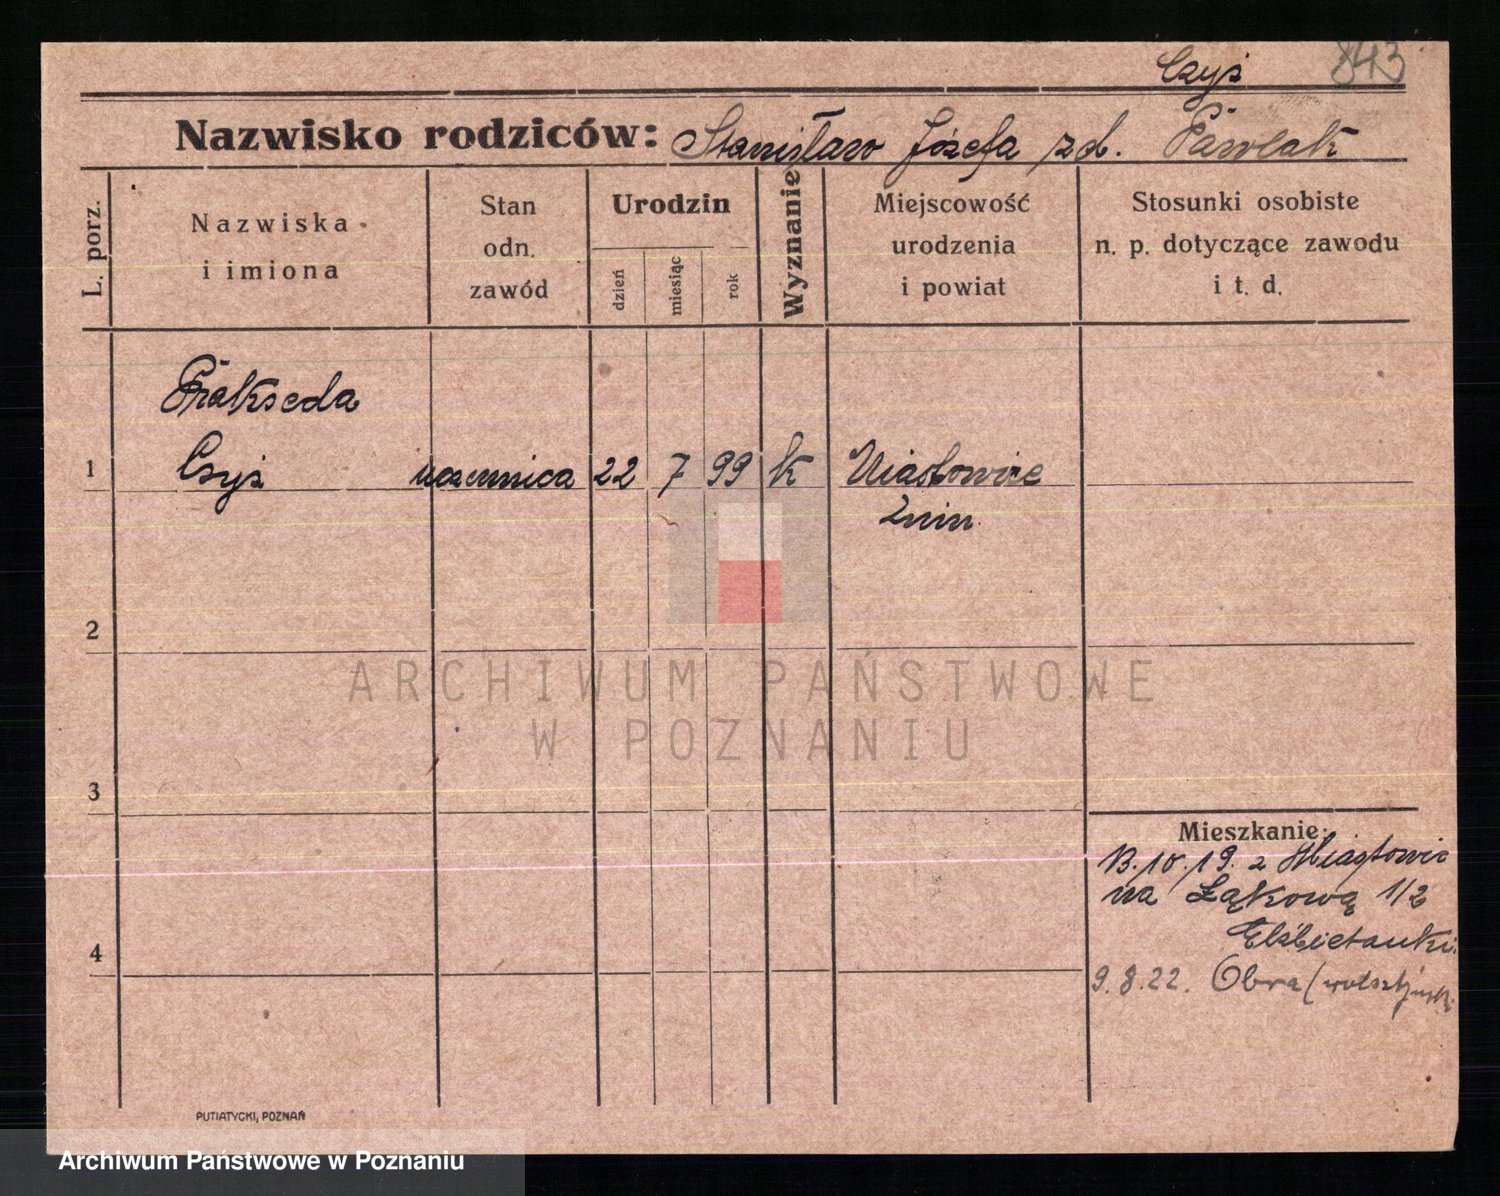 Czyż 843
Nazwisko rodziców: Stanisław Józefa zd. Pawlak
L. porz.
Nazwiska
i imiona
Stan
odn.
zawód
Urodzin
dzień
miesiąc
rok
Wyznanie
Miejscowość
urodzenia
i powiat
Stosunki osobiste
n. p. dotyczące zawodu
i t. d.
Prakseda
1 Czyż uczennica 22 7 99 k Miastowice
Żnin
2
ARCHIWUM PAŃSTWOWE
W POZNANIU
3
Mieszkanie:
13.10.19. z Miastowic
na Łąkową 1/2
Elżbietanki
4
9.8.22. Obra
PUTIATYCKI, POZNAŃ
Archiwum Państwowe w Poznaniu